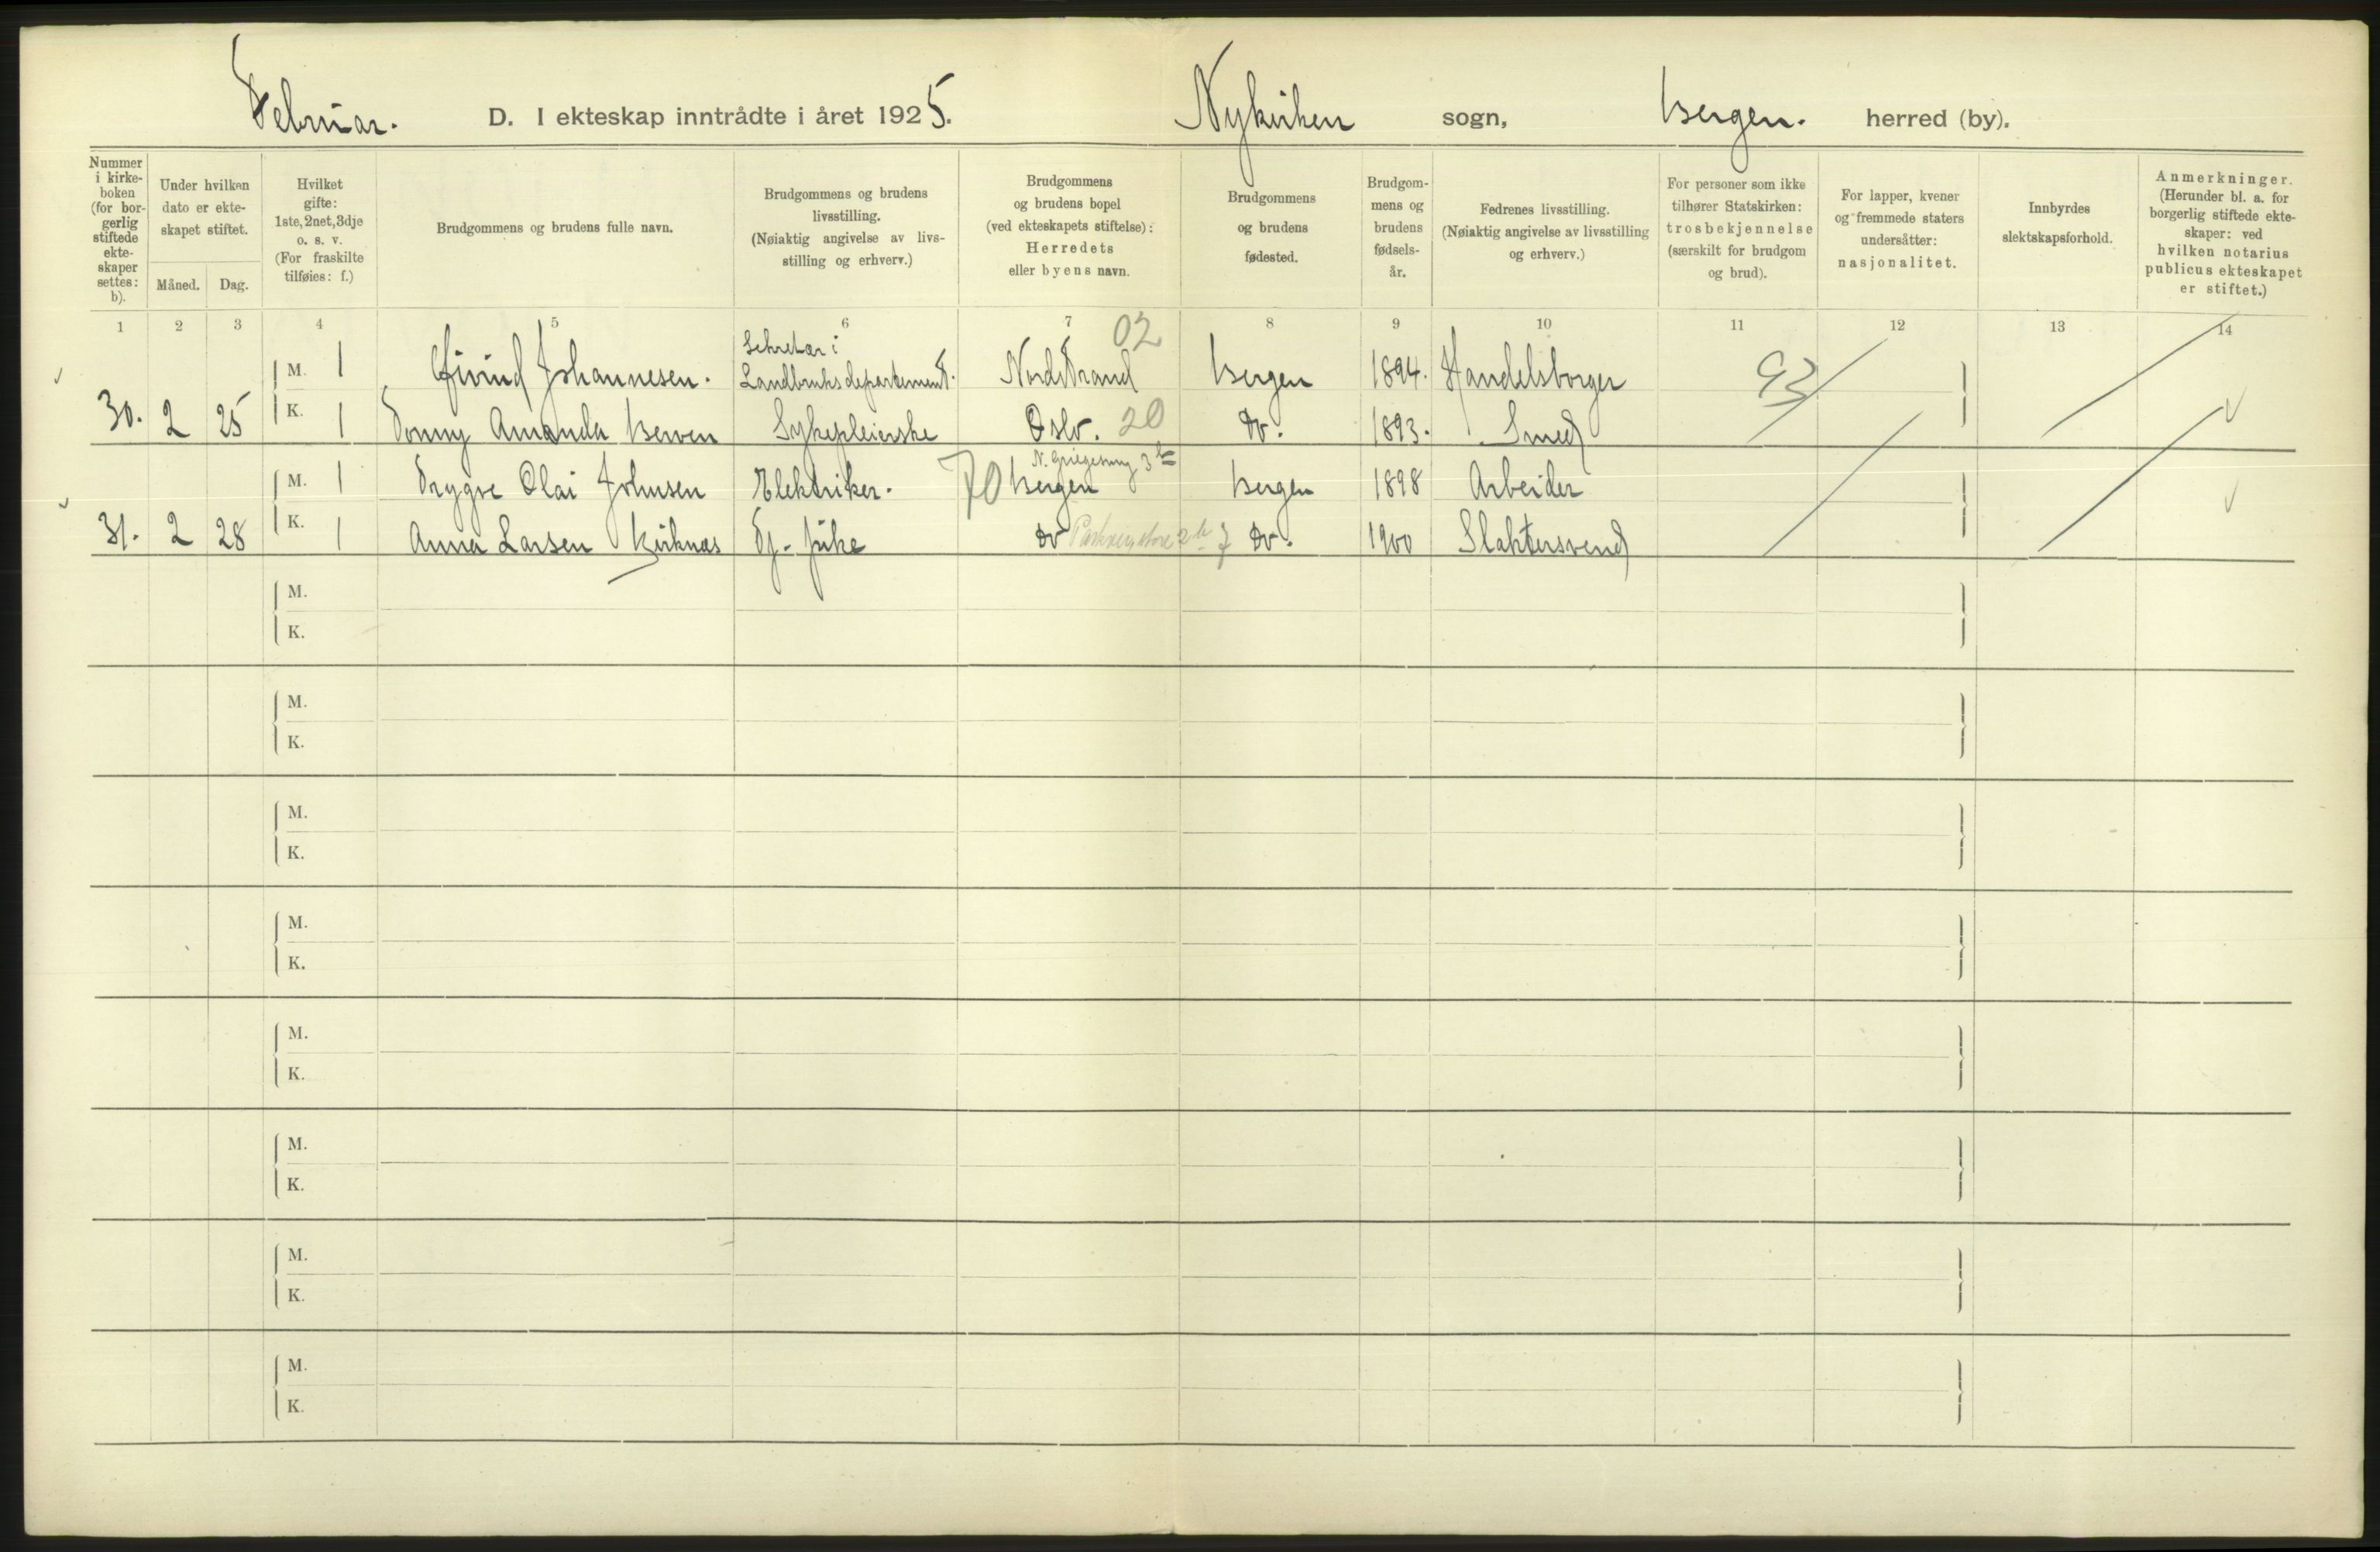 Februar. D. I ekteskap inntrådte i året 1925. Nykirken sogn, Bergen. herred (by).
Nummer i kirke- boken (for bor- gerlig stiftede ekte- skaper settes: b).
Under hvilken dato er ekte- skapet stiftet.
Måned. Dag.
Hvilket gifte: 1ste, 2net, 3dje o. s. v. (For fraskilte tilføies: f.)
Brudgommens og brudens fulle navn.
Brudgommens og brudens livsstilling. (Nøiaktig angivelse av livs- stilling og erhverv.)
Brudgommens og brudens bopel (ved ekteskapets stiftelse): Herredets eller byens navn.
Brudgommens og brudens fødested.
Brudgom- mens og brudens fødsels- år.
Fedrenes livsstilling. (Nøiaktig angivelse av livsstilling og erhverv.)
For personer som ikke tilhører Statskirken: trosbekjennelse (særskilt for brudgom og brud).
For lapper, kvener og fremmede staters undersåtter: nasjonalitet.
Innbyrdes slektskapsforhold.
Anmerkninger. (Herunder bl. a. for borgerlig stiftede ekte- skaper: ved hvilken notarius publicus ekteskapet er stiftet.)
1 2 3 4 5 6 7 8 9 10 11 12 13 14
M. 1 Øivind Johannesen. Sekretær i Landbruksdepartement. Nordstrand 02 Bergen 1894. Handelsborger 93
30. 2 25 K. 1 Tonny Amanda Berven Sykepleierske Oslo. 20 do. 1893. Smed
M. 1 Trygve Olai Johnsen Elektriker. 70 Bergen Bergen 1898 Arbeider
31. 2 28 K. 1 Anna Larsen Kirknes Tj. pike do do. 1900 Slaktersvend
M.
K.
M.
K.
M.
K.
M.
K.
M.
K.
M.
K.
M.
K.
M.
K.